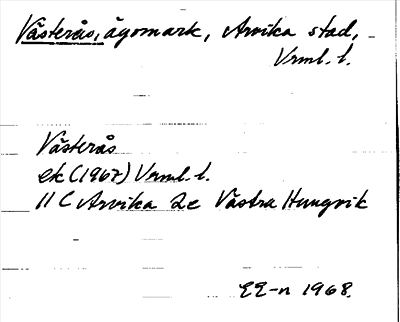 Västerås, ägomark, Arvika stad,
Vrml. l.
Västerås
ek (1967) Vrml. l.
11 C Arvika 2c Västra Hungvik
EE-n 1968.